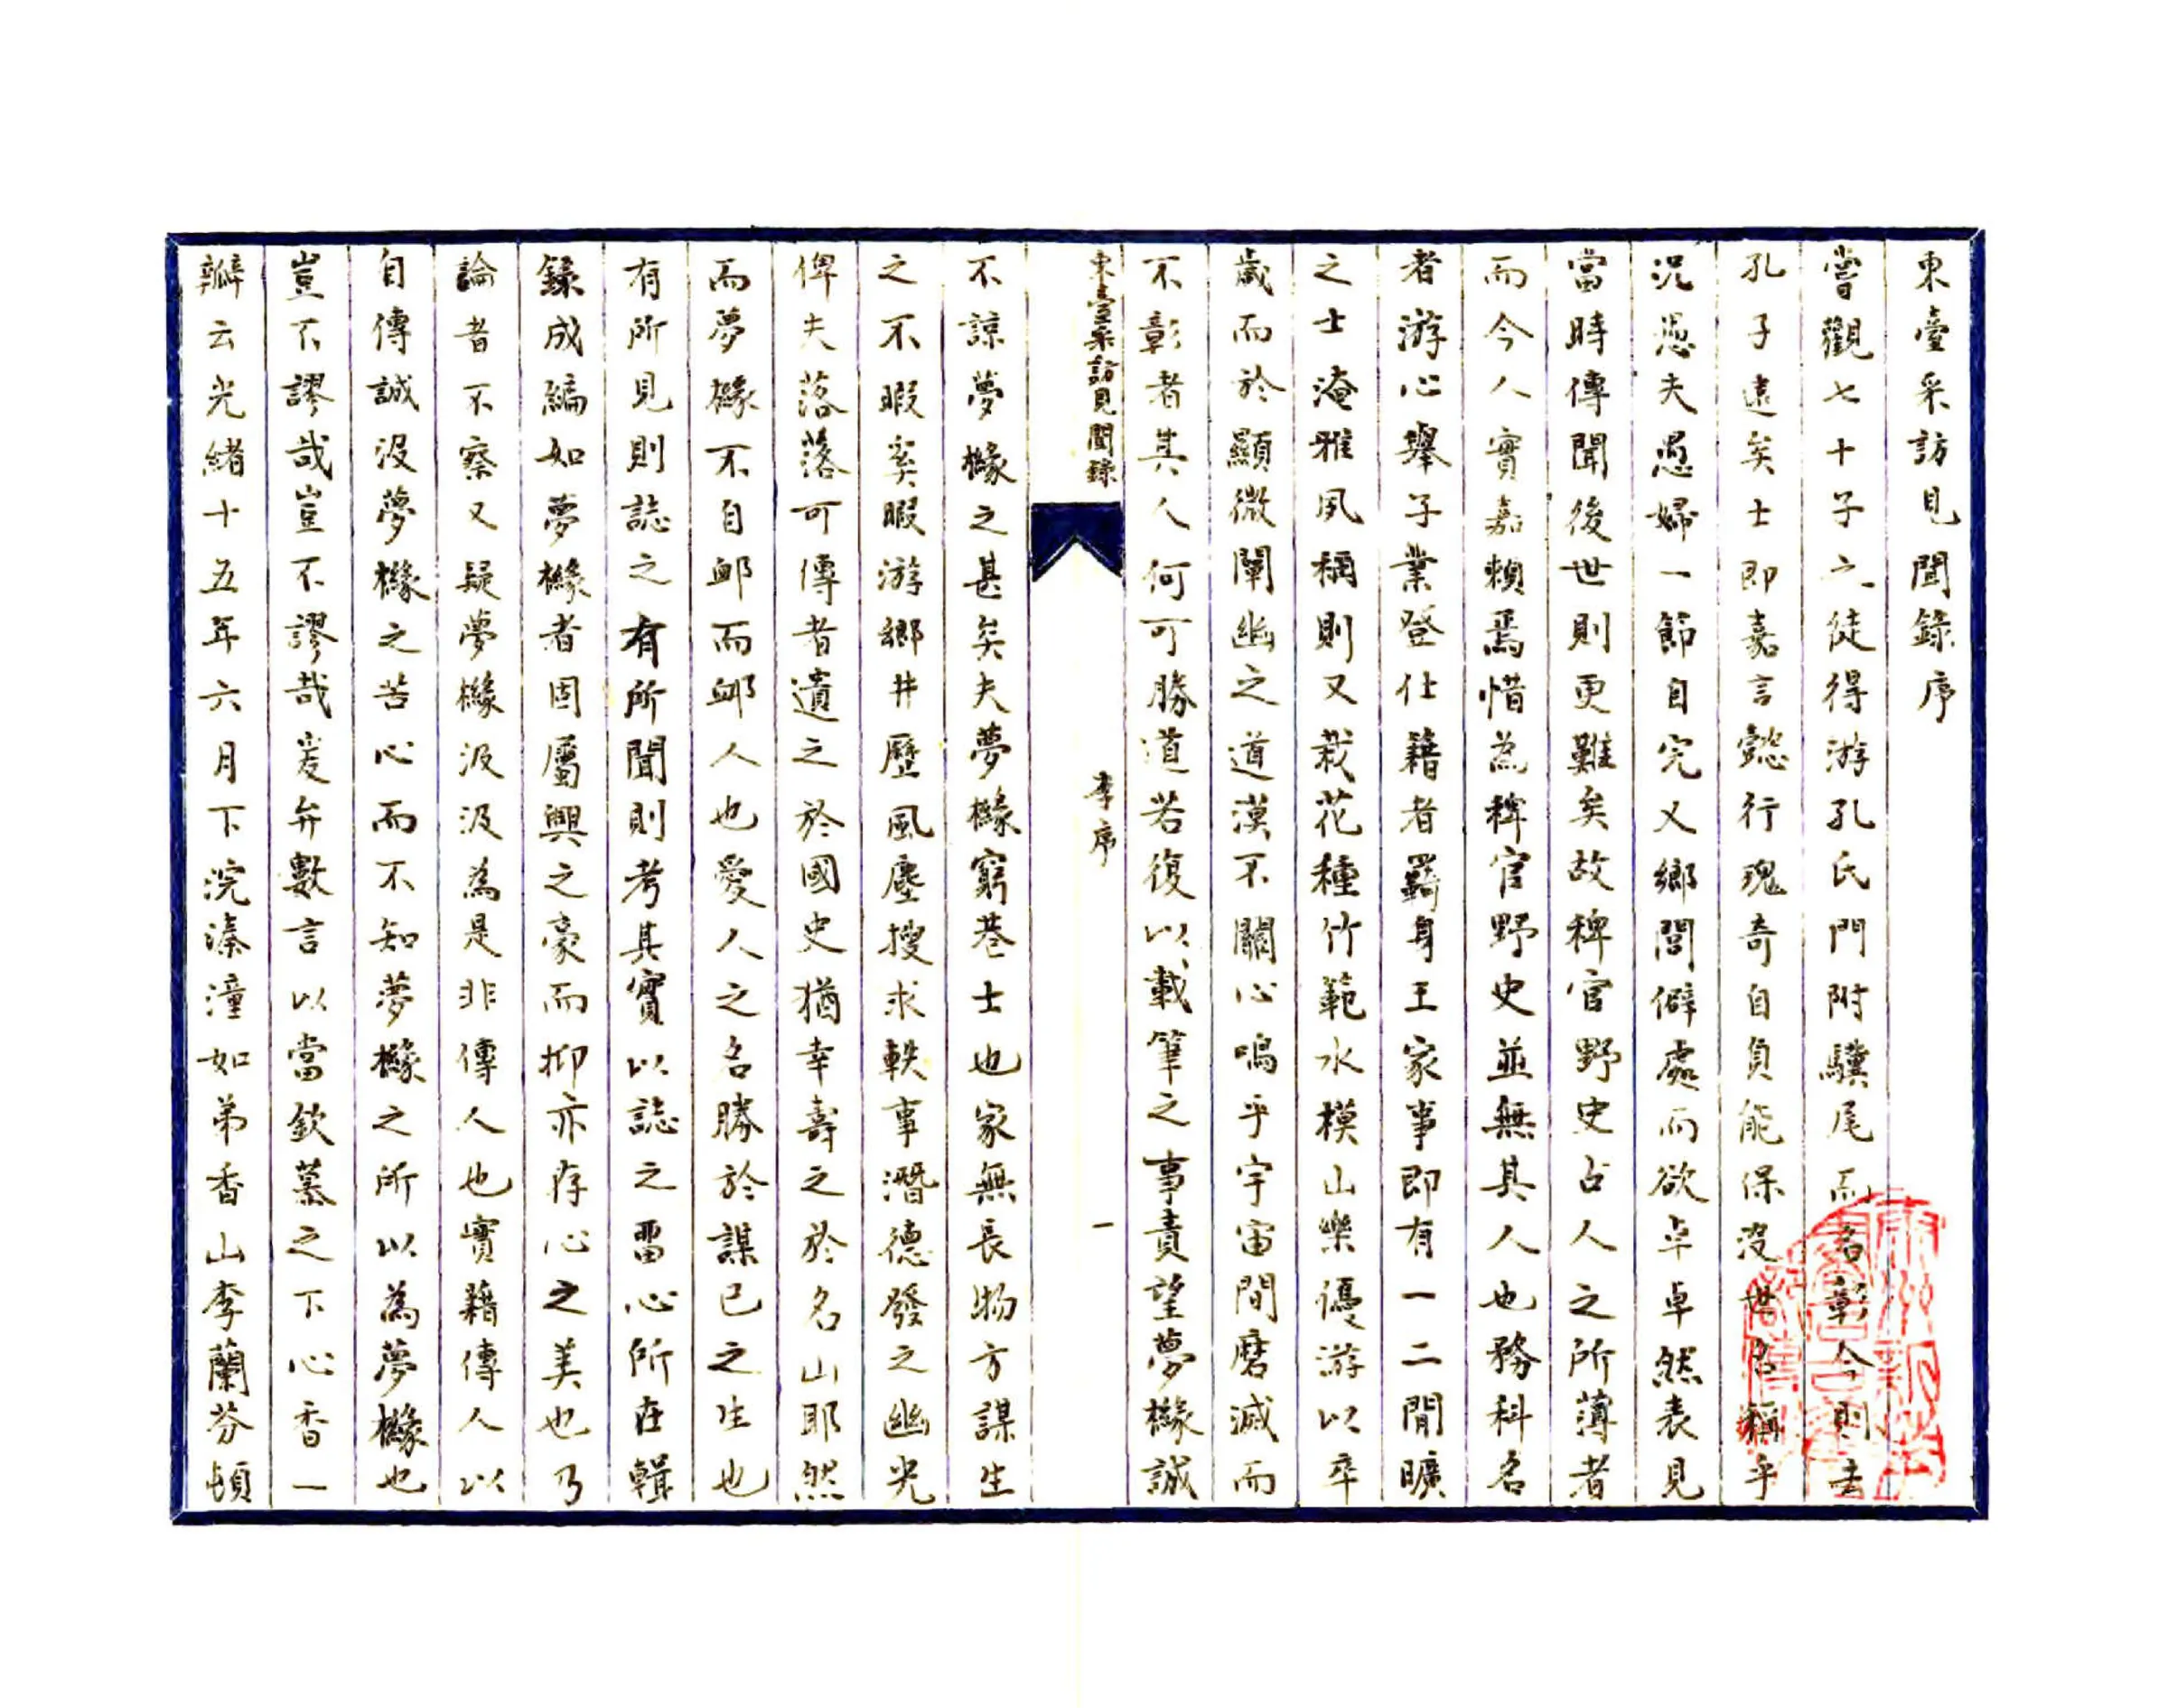 東臺采訪見聞錄序
嘗觀七十子之徒得游孔氏門附驥尾而名彰今則去
孔子遠矣士即嘉言懿行瑰奇自負能保沒世名稱乎
況愚夫愚婦一節自完又鄉閭僻處而欲卓卓然表見
當時傳聞後世則更難矣故稗官野史占人之所薄者
而今人實嘉賴焉惜為稗官野史並無其人也務科名
者游心舉子業登仕籍者羈身王家事即有一二閒曠
之士淹雅夙稱則又栽花種竹範水模山樂優游以卒
歲而於顯微闡幽之道漠不關心嗚乎宇宙間磨滅而
不彰者其人何可勝道若復以載筆之事責望夢橼誠
東臺采訪見聞錄
李序
一
不諒夢橼之甚矣夫夢橼窮巷士也家無長物方謀生
之不暇奚暇游鄉井歷風塵搜求軼事潛德發之幽光
俾夫落落可傳者遺之於國史猶幸壽之於名山耶然
而夢橼不自卹而卹人也愛人之名勝於謀己之生也
有所見則誌之有所聞則考其實以誌之畱心所在輯
錄成編如夢橼者固屬興之豪而抑亦存心之美也乃
論者不察又疑夢橼汲汲為是非傳人也實藉傳人以
自傳誠沒夢橼之苦心而不知夢橼之所以為夢橼也
豈不謬哉豈不謬哉爰弁數言以當欽慕之下心香一
瓣云光緒十五年六月下浣溱潼如弟香山李蘭芬頓